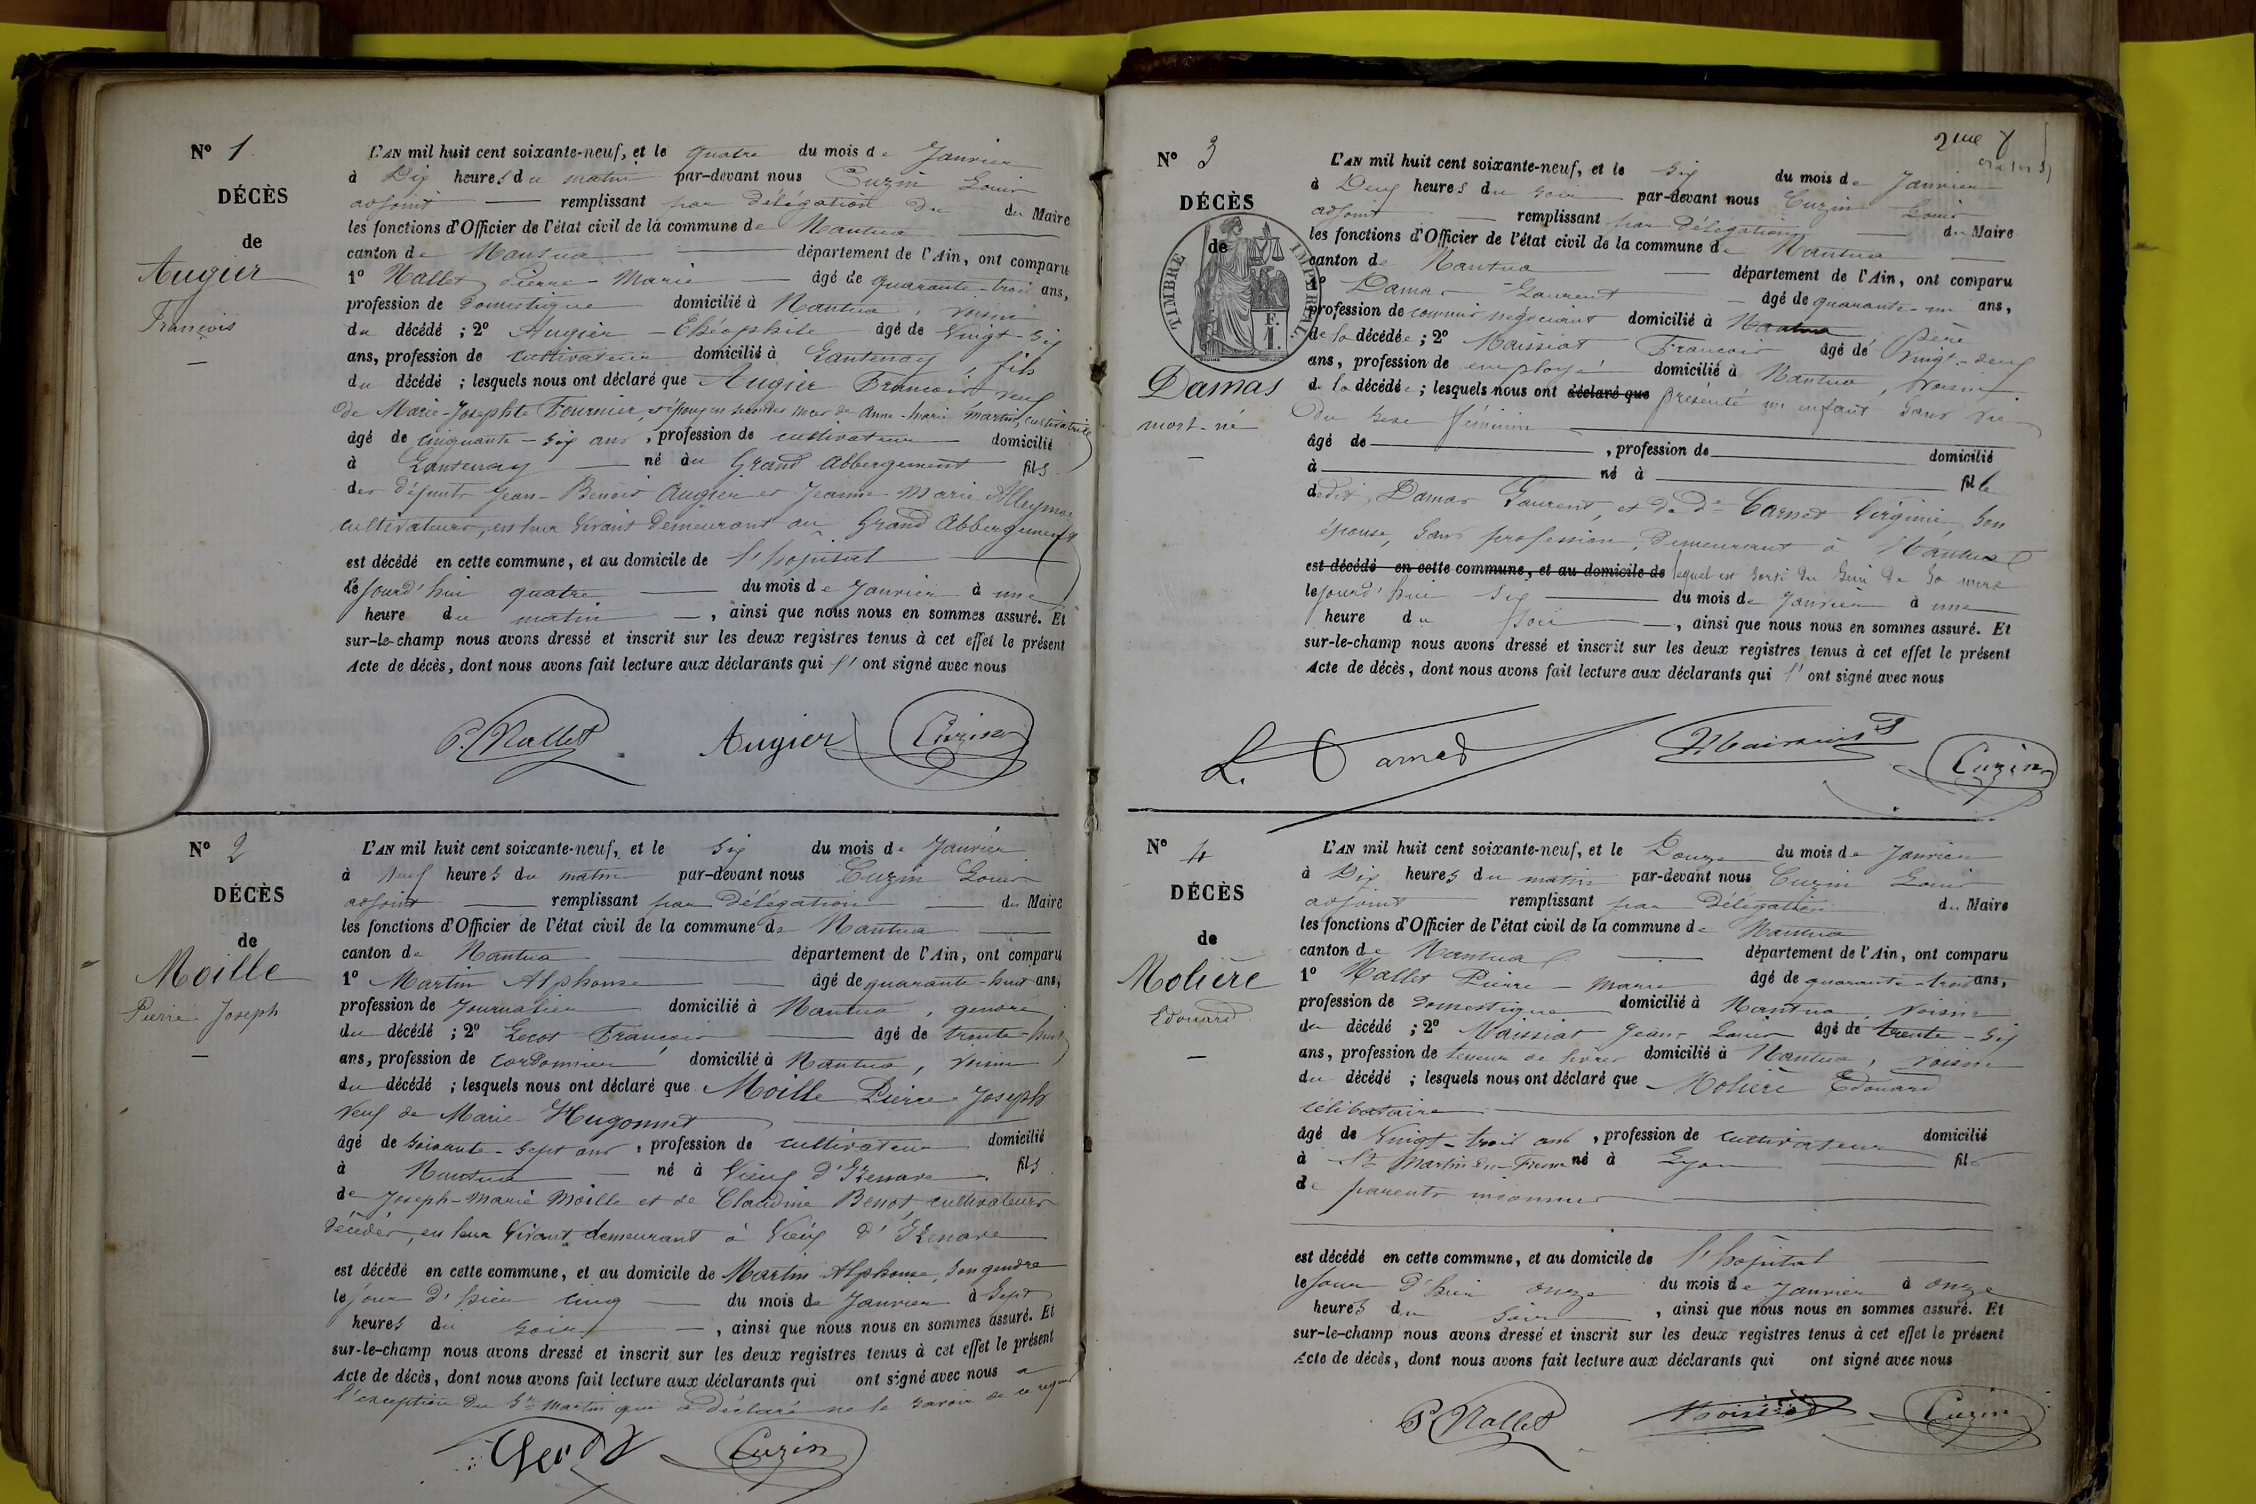 N° 1
DÉCÈS
de
Augier
François
L'AN mil huit cent soixante-neuf, et le quatre du mois de Janvier
à Dix heures du matin par-devant nous Cuzin Louis
adjoint remplissant par délégation du du Maire
les fonctions d'Officier de l'état civil de la commune de Nantua
canton de Nantua département de l'Ain, ont comparu
1° Nallet Pierre-Marie âgé de quarante-trois ans,
profession de domestique domicilié à Nantua, voisin
du décédé ; 2° Augier Théophile âgé de vingt-six
ans, profession de cultivateur domicilié à Lantenay, fils
du décédé ; lesquels nous ont déclaré que Augier François veuf
de Marie-Josephte Fournier, et époux en secondes noces de Anne-Marie Martin, cultivatrice
âgé de cinquante-six ans, profession de cultivateur domicilié
à Lantenay né au Grand Abbergement fils
des défunts Jean-Benoit Augier et Jeanne Marie
cultivateurs, en leur vivant demeurant au Grand Abbergement
est décédé en cette commune, et au domicile de l'hopital
le jourd'hui quatre du mois de Janvier à une
heure du matin, ainsi que nous nous en sommes assuré. Et
sur-le-champ nous avons dressé et inscrit sur les deux registres tenus à cet effet le présent
Acte de décès, dont nous avons fait lecture aux déclarants qui l' ont signé avec nous
P. Nallet Augier Cuzin
N° 2
DÉCÈS
de
Moille
Pierre Joseph
L'AN mil huit cent soixante-neuf, et le six du mois de Janvier
à neuf heures du matin par-devant nous Cuzin Louis
adjoint remplissant par délégation du Maire
les fonctions d'Officier de l'état civil de la commune de Nantua
canton de Nantua département de l'Ain, ont comparu
1° Martin Alphonse âgé de quarante-huit ans,
profession de Journalier domicilié à Nantua, gendre
du décédé ; 2° François âgé de trente-huit
ans, profession de cordonnier domicilié à Nantua, voisin
du décédé ; lesquels nous ont déclaré que Moille Pierre Joseph
veuf de Marie Hugonnet
âgé de soixante-sept ans, profession de cultivateur domicilié
à Nantua né à Vieux d'Izenave fils
de Joseph-Marie Moille et de Claudine Benot, cultivateurs
décédés, en leur vivant demeurant à Vieux d'Izenave
est décédé en cette commune, et au domicile de Martin Alphonse, son gendre
le jour d'hier cinq du mois de Janvier à sept
heures du soir, ainsi que nous nous en sommes assuré. Et
sur-le-champ nous avons dressé et inscrit sur les deux registres tenus à cet effet le présent
Acte de décès, dont nous avons fait lecture aux déclarants qui ont signé avec nous a
l'exception du Sr Martin qui a déclaré ne le savoir de ce requis
Cuzin
2me
N° 3
DÉCÈS
de
TIMBRE IMPERIAL
Damas
mort-né
L'AN mil huit cent soixante-neuf, et le six du mois de Janvier
à Deux heures du soir par-devant nous Cuzin Louis
adjoint remplissant par délégation du Maire
les fonctions d'Officier de l'état civil de la commune de Nantua
canton de Nantua département de l'Ain, ont comparu
1° Damas Laurent âgé de quarante-un ans,
profession de commis négociant domicilié à Nantua père
de la décédée ; 2° Maissiat François âgé de vingt-deux
ans, profession de employé domicilié à Nantua, voisin
de la décédée ; lesquels nous ont déclaré que présenté un enfant sans vie
du sexe féminin
âgé de , profession de domicilié
à né à fille
dudit Damas Laurent, et de De Carnet Virginie, son
épouse, sans profession, demeurant à Nantua
est décédé en cette commune, et au domicile de lequel est sorti du sein de sa mère
le jourd'hui six du mois de Janvier à une
heure du soir, ainsi que nous nous en sommes assuré. Et
sur-le-champ nous avons dressé et inscrit sur les deux registres tenus à cet effet le présent
Acte de décès, dont nous avons fait lecture aux déclarants qui l' ont signé avec nous
L. Damas Maissiat Cuzin
N° 4
DÉCÈS
de
Molière
Edouard
L'AN mil huit cent soixante-neuf, et le Douze du mois de Janvier
à Dix heures du matin par-devant nous Cuzin Louis
adjoint remplissant par délégation du Maire
les fonctions d'Officier de l'état civil de la commune de Nantua
canton de Nantua département de l'Ain, ont comparu
1° Nallet Pierre-Marie âgé de quarante-trois ans,
profession de domestique domicilié à Nantua, voisin
du décédé ; 2° Maissiat Jean-Louis âgé de trente-six
ans, profession de teneur de livres domicilié à Nantua, voisin
du décédé ; lesquels nous ont déclaré que Molière Edouard
célibataire
âgé de vingt-trois ans, profession de cultivateur domicilié
à St Martin-du-Fresne né à Lyon fils
de parents inconnus
est décédé en cette commune, et au domicile de l'hôpital
le jour d'hier onze du mois de Janvier à onze
heures du soir, ainsi que nous nous en sommes assuré. Et
sur-le-champ nous avons dressé et inscrit sur les deux registres tenus à cet effet le présent
Acte de décès, dont nous avons fait lecture aux déclarants qui ont signé avec nous
P. Nallet Maissiat Cuzin